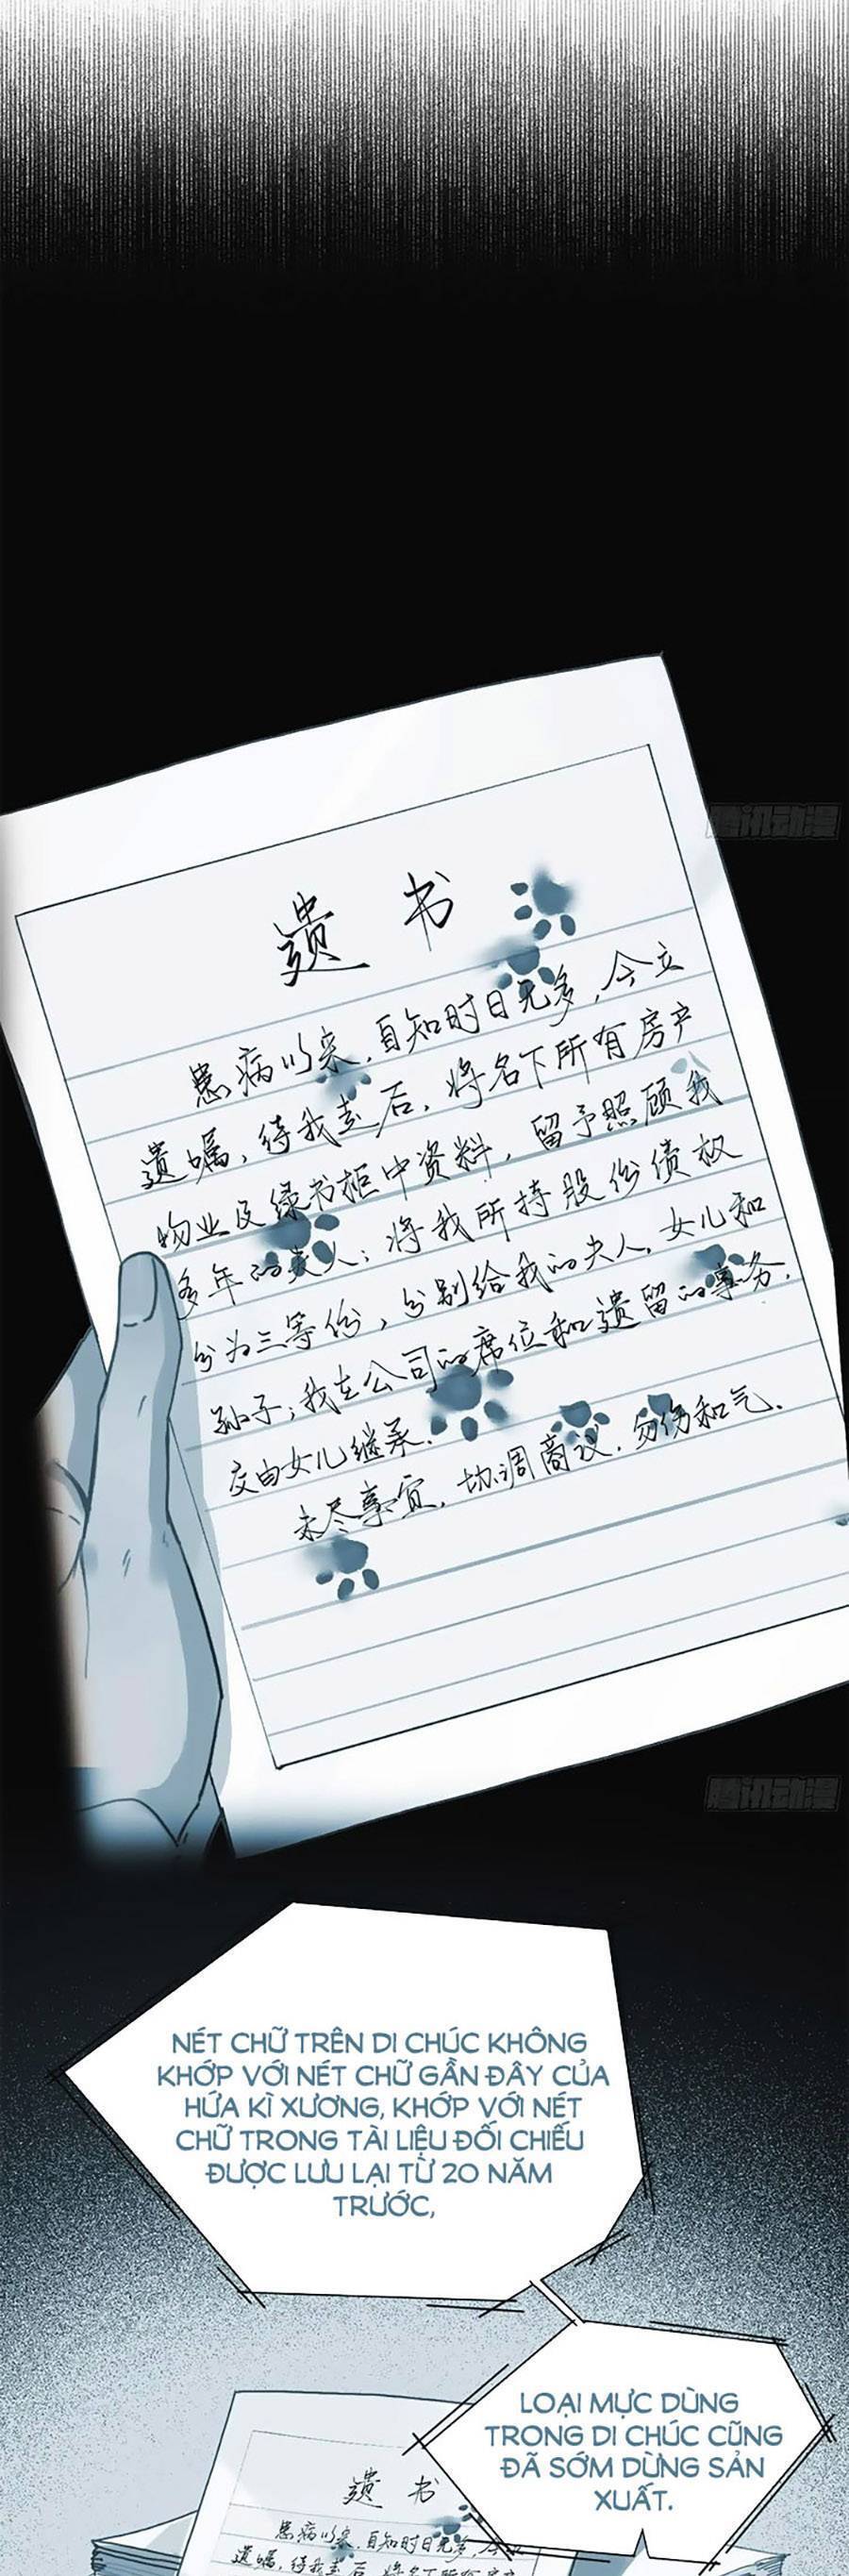 腾讯动漫
遗书
患病以来，自知时日无多，今立
遗嘱，待我去后，将名下所有房产
物业及绿书柜中资料，留予照顾我
多年的美人；将我所持股份债权
分为三等份，分别给我的夫人，女儿和
孙子；我在公司的席位和遗留的事务，
交由女儿继承。
未尽事宜，协调商议，勿伤和气。
腾讯动漫
NÉT CHỮ TRÊN DI CHÚC KHÔNG
KHỚP VỚI NÉT CHỮ GẦN ĐÂY CỦA
HỨA KÌ XƯƠNG, KHỚP VỚI NÉT
CHỮ TRONG TÀI LIỆU ĐỐI CHIẾU
ĐƯỢC LƯU LẠI TỪ 20 NĂM
TRƯỚC,
LOẠI MỰC DÙNG
TRONG DI CHÚC CŨNG
ĐÃ SỚM DỪNG SẢN
XUẤT.
遗书
患病以来，自知时日无多，今立
遗嘱，待我去后，将名下所有房产